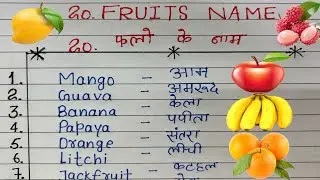 20. FRUITS NAME
20. फलो के नाम
1. Mango - आम
2. Guava - अमरूद
3. Banana - केला
4. Papaya - पपीता
5. Orange - संतरा
6. Litchi - लीची
7. Jackfruit - कटहल